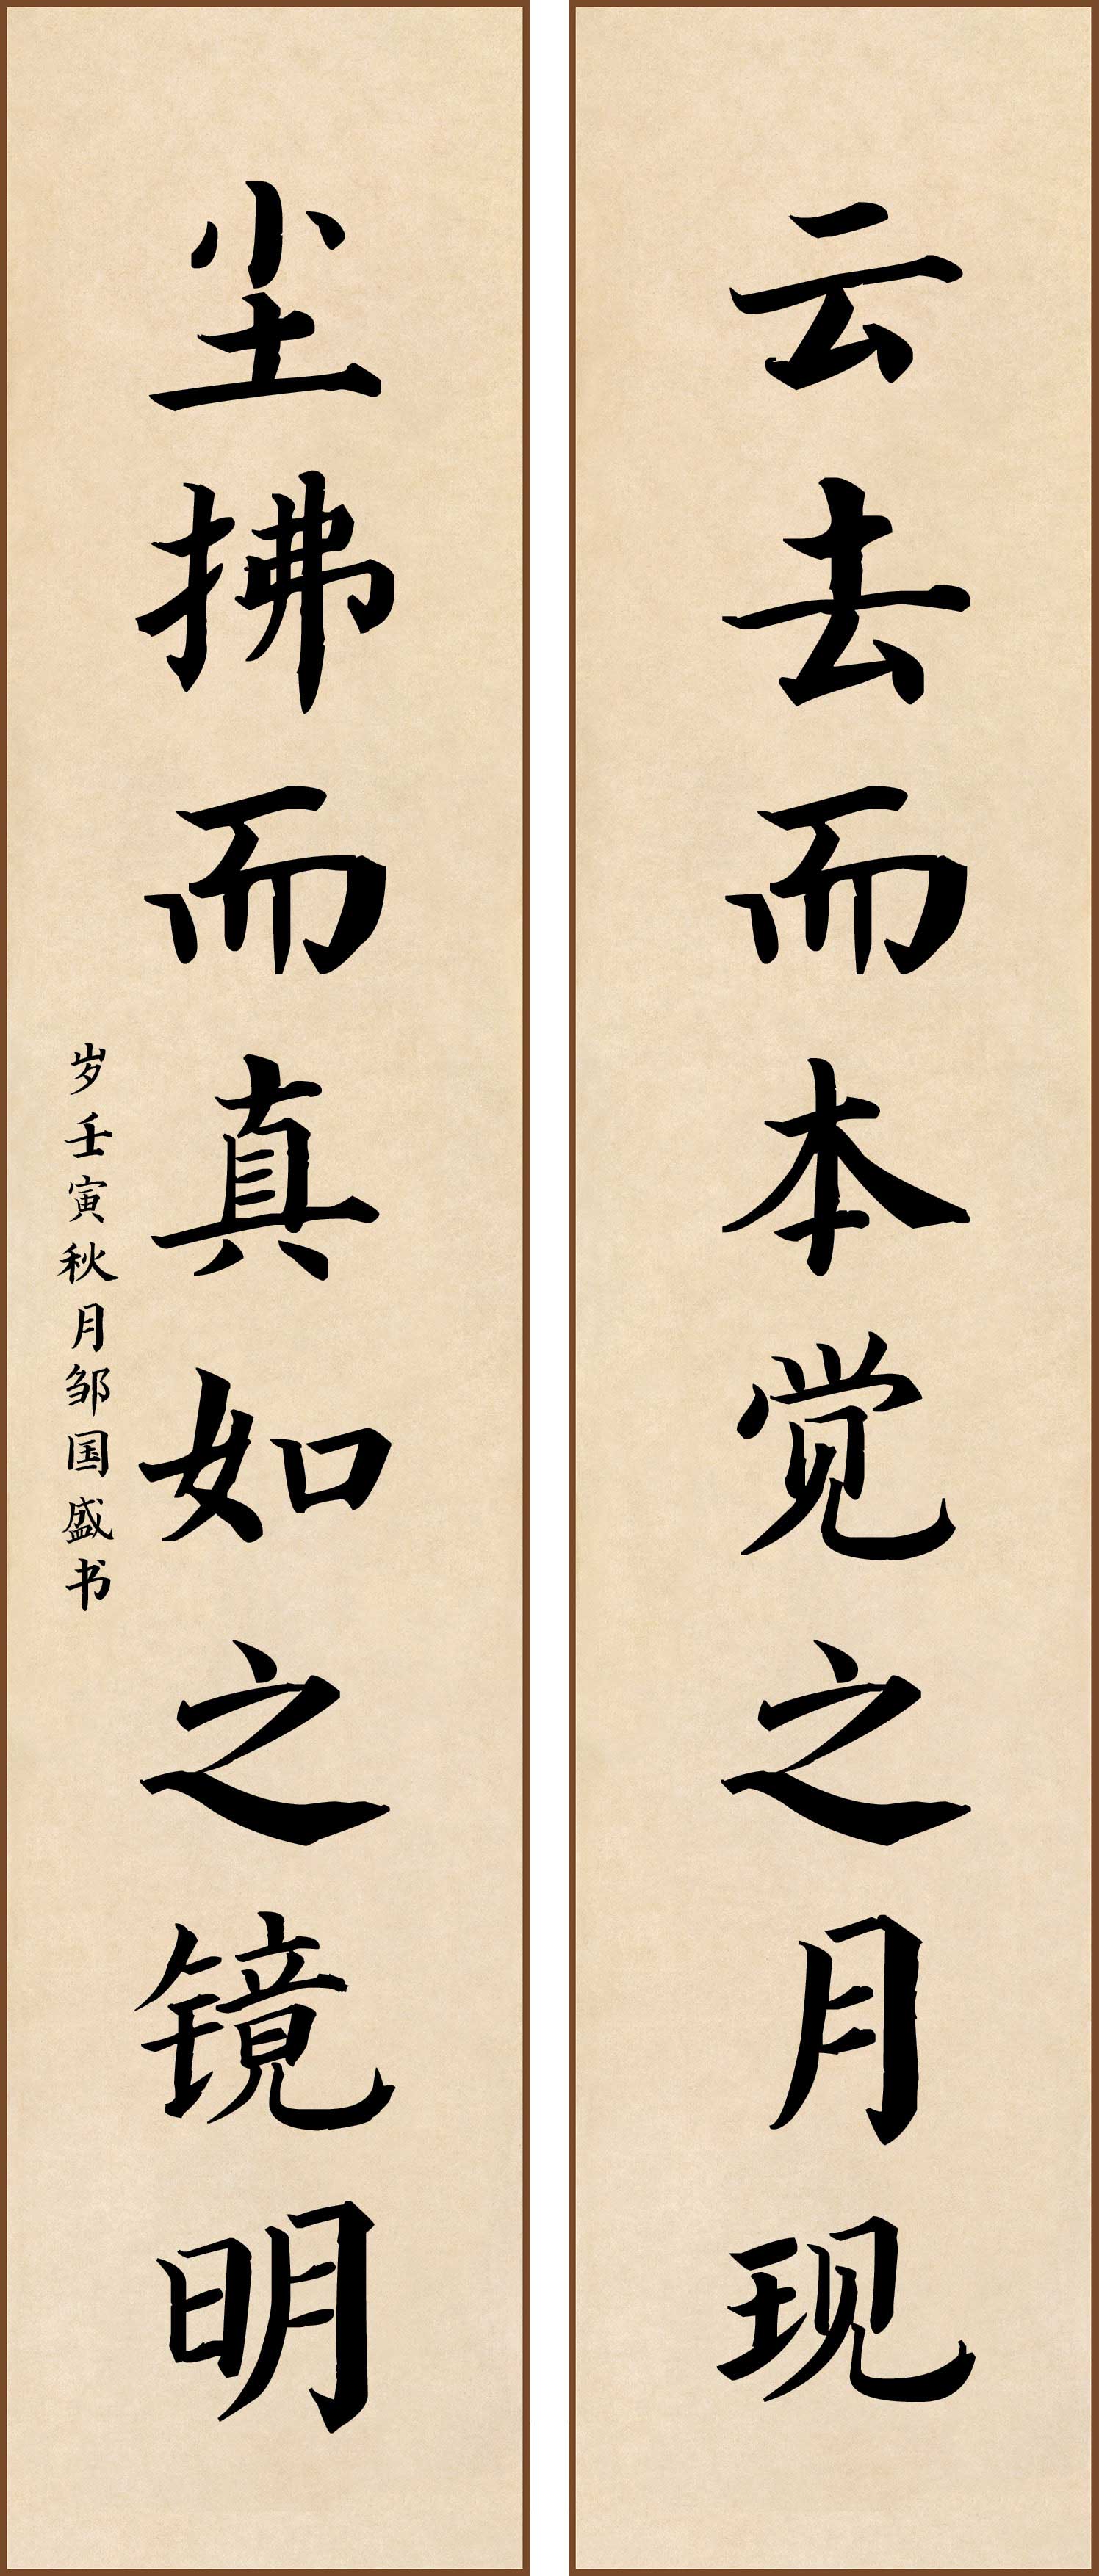 云去而本觉之月现
尘拂而真如之镜明
岁壬寅秋月邹国盛书